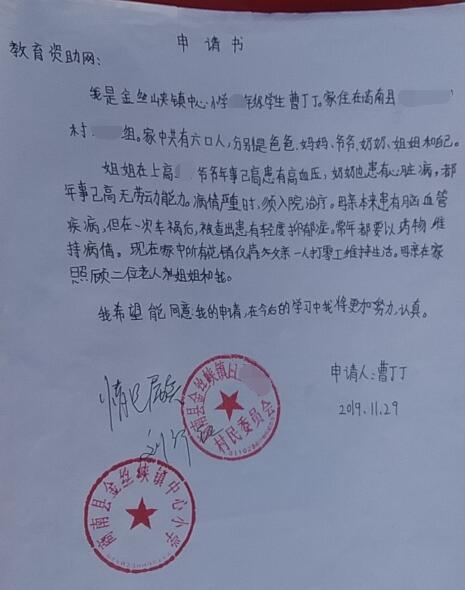 申请书
教育资助网：
我是金丝峡镇中心小学 年级学生曹丁丁。家住在商南县
村 组。家中共有六口人，分别是爸爸、妈妈、爷爷、奶奶、姐姐和自己。
姐姐在上高 爷爷年事已高患有高血压，奶奶也患有心脏病，都
年事已高无劳动能力。病情严重时，须入院治疗。母亲本来患有脑血管
疾病，但在一次车祸后，被查出患有轻度抑郁症。常年都要以药物维
持病情。现在家中所有花销仅靠父亲一人打零工维持生活。母亲在家
照顾二位老人和姐姐和我。
我希望能同意我的申请，在今后的学习中我将更加努力，认真。
申请人：曹丁丁
2019.11.29
情况属实
商南县金丝峡镇
村民委员会
商南县金丝峡镇中心小学